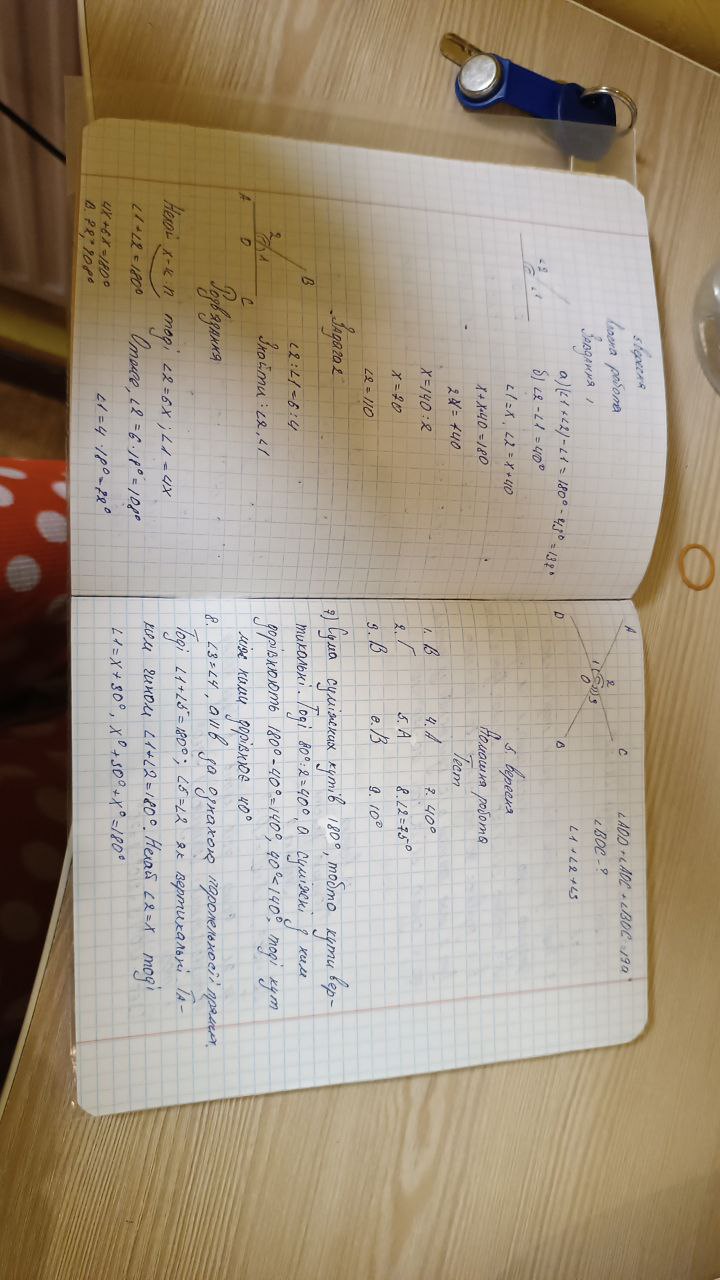 5 вересня
Класна робота
Завдання 1
∠2 ∠1
а) (∠1+∠2)-∠1=180°-43°=137°
б) ∠2-∠1=40°
∠1=x, ∠2=x+40
x+x+40=180
x=140:2
x=70
∠2=110
Задача 2
∠2:∠1=6:4
Знайти: ∠2, ∠1
A D C B
2 1
Розв'язання
Нехай x - к. п тоді ∠2=6x; ∠1=4x
∠1+∠2=180° Отже, ∠2=6·18°=108°
4x+6x=180° ∠1=4·18°=72°
A D O C B
1 2 3
∠AOD+∠AOC+∠BOC=
∠BOC-?
∠1+∠2+∠3
5 вересня
Домашня робота
Тест
1. В 4. А 7. 40°
2. Г 5. А 8. ∠2=75°
3. В 6. В 9. 10°
7) Сума суміжних кутів 180°, тобто кути вер-
тикальні. Тоді 80°:2=40°, а суміжні з ним
дорівнюють 180°-40°=140°, 40°<140°, тоді кут
між ними дорівнює 40°
8. ∠3=∠4, a||b за ознакою паралельності прямих.
Тоді ∠1+∠5=180°; ∠5=∠2 як вертикальні Та-
ким чином ∠1+∠2=180°. Нехай ∠2=x тоді
∠1=x+30°, x°+30°+x°=180°